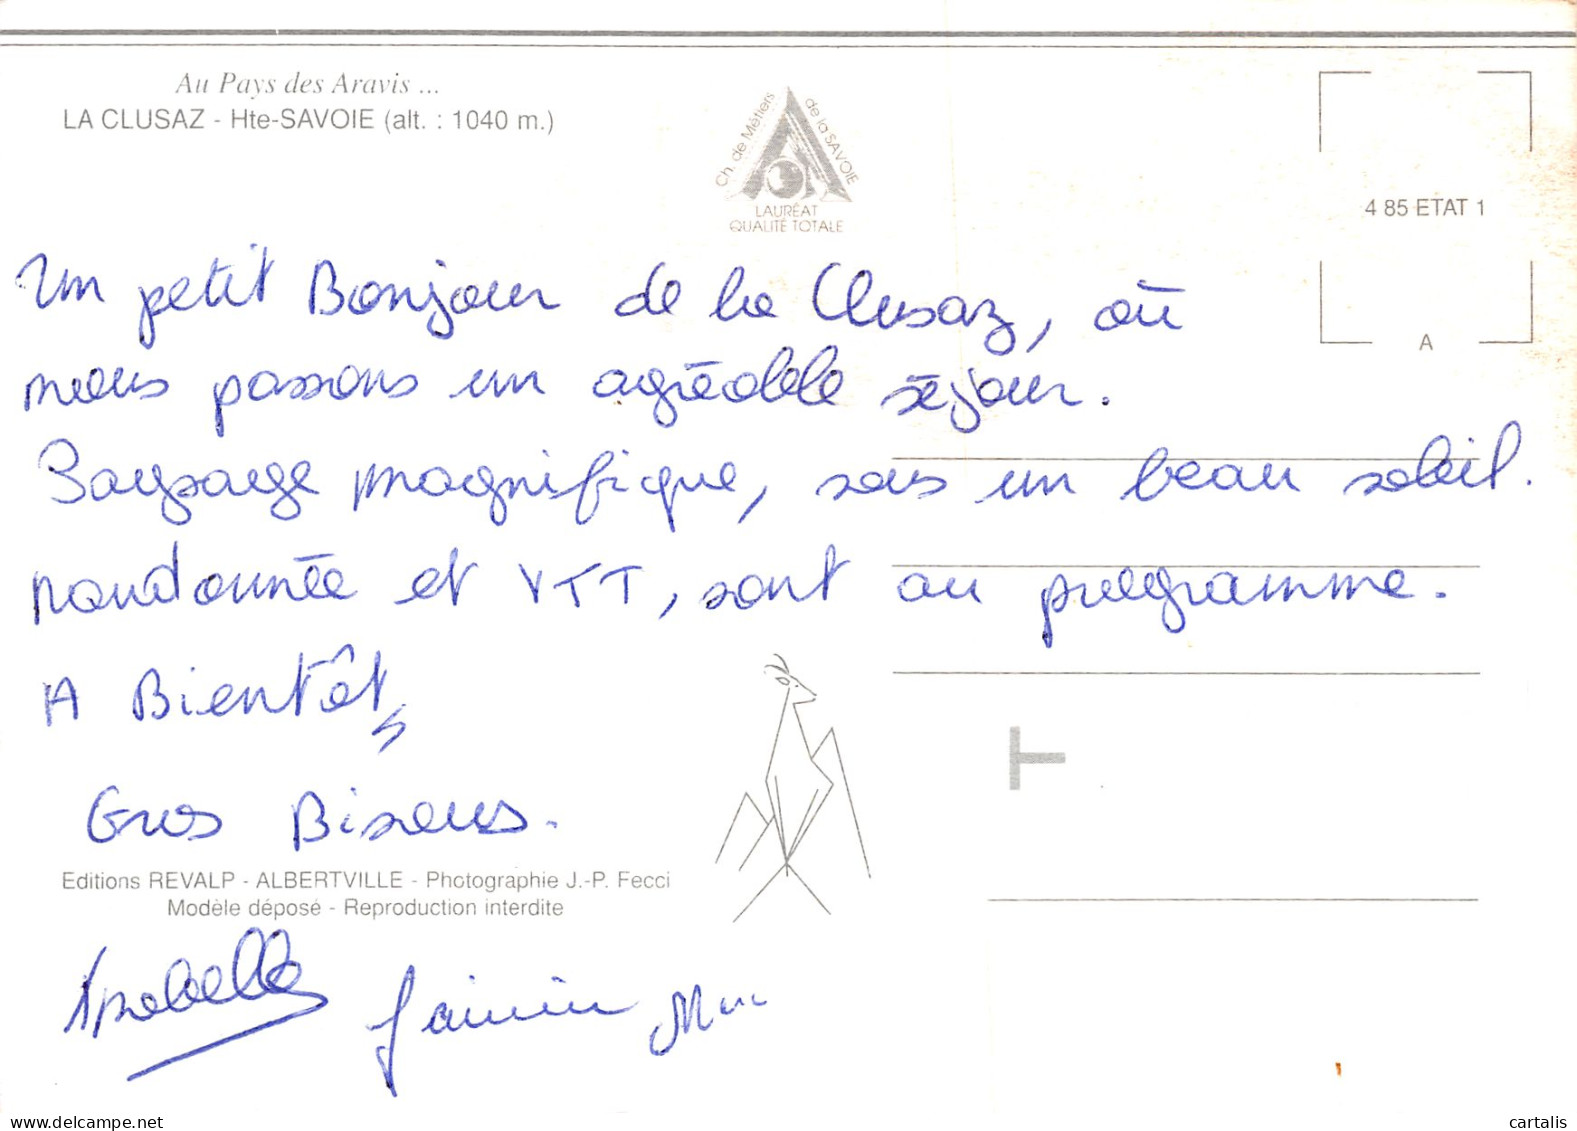 Au Pays des Aravis ...
LA CLUSAZ - Hte-SAVOIE (alt. : 1040 m.)
Ch. de Métiers de la SAVOIE
LAURÉAT
QUALITÉ TOTALE
4 85 ETAT 1
A
Un petit Bonjour de la Clusaz, où
nous passons un agréable séjour.
Paysage magnifique, sous un beau soleil.
randonnée et VTT, sont au programme.
A Bientôt,
Gros Bisous.
Editions REVALP - ALBERTVILLE - Photographie J.-P. Fecci
Modèle déposé - Reproduction interdite
Isabelle
cartalis
www.delcampe.net